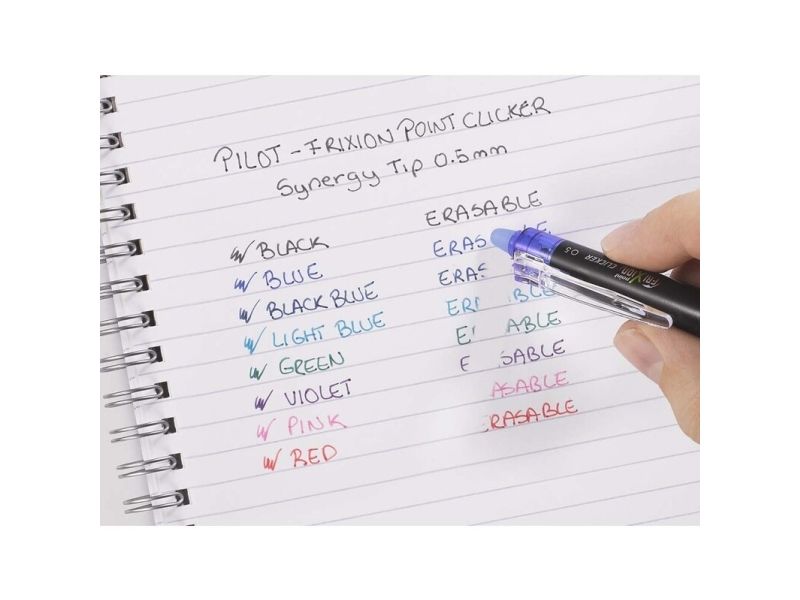 PILOT - FRIXION POINT CLICKER
Synergy Tip 0.5mm
ERASABLE
BLACK
BLUE ERAS LE
BLACK BLUE ERAS
LIGHT BLUE ERI BLE
GREEN E ABLE
VIOLET E SABLE
PINK ASABLE
RED RASABLE
FRIXION point CLICKER 05